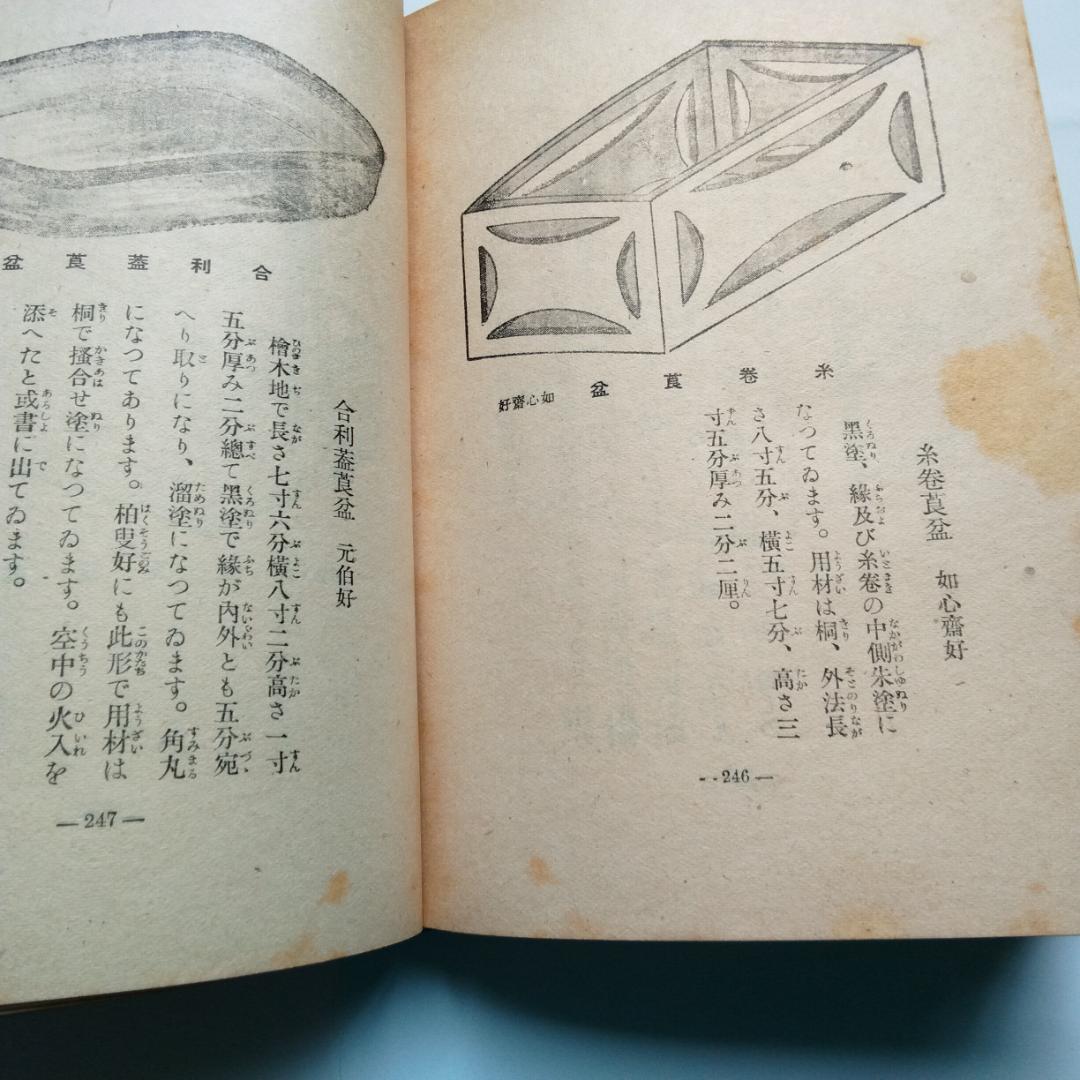 糸卷莨盆
如心齋好
糸卷莨盆　如心齋好
黑塗、緣及び糸卷の中側朱塗に
なつてゐます。用材は桐、外法長
さ八寸五分、橫五寸七分、高さ三
寸五分厚み二分二厘。
— 246 —
合利葢莨盆
合利葢莨盆　元伯好
檜木地で長さ七寸六分橫八寸二分高さ一寸
五分厚み二分總て黑塗で緣が內外とも五分宛
へり取りになり、溜塗になつてゐます。角丸
になつてあります。柏叟好にも此形で用材は
桐で搔合せ塗になつてゐます。空中の火入を
添へたと或書に出てゐます。
— 247 —